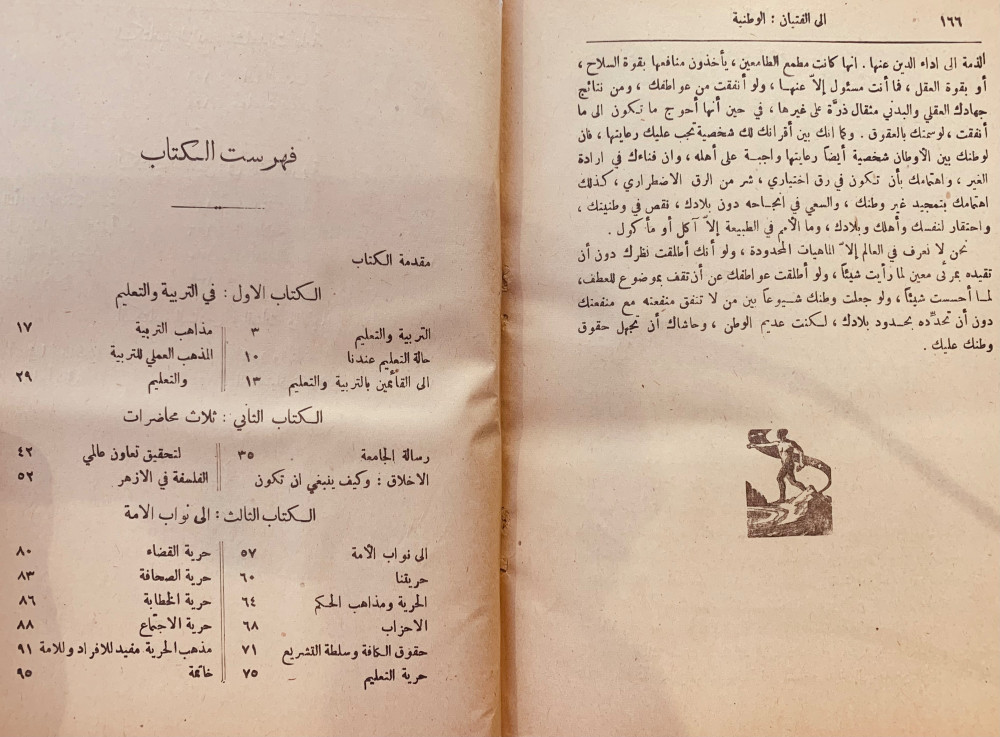 ١٦٦
الى الفتيان : الوطنية
الذمة الى اداء الدين عنها . انها كانت مطمع الطامعين ، يأخذون منافعها بقوة السلاح ،
أو بقوة العقل ، فما أنت مسئول إلاّ عنها ، ولو أنفقت من عواطفك ، ومن نتائج
جهادك العقلي والبدني مثقال ذرَّة على غيرها ، في حين أنها أحوج ما تكون الى ما
أنفقت ، لوسمتك بالعقوق . وكما انك بين أقرانك لك شخصية تجب عليك رعايتها ، فان
لوطنك بين الأوطان شخصية أيضاً رعايتها واجبة على أهله ، وان فناءك في ارادة
الغير ، واهتمامك بأن تكون في رق اختياري ، شر من الرق الاضطراري ، كذلك
اهتمامك بتمجيد غير وطنك ، والسعي في انجاحه دون بلادك ، نقص في وطنيتك ،
واحتقار لنفسك وأهلك وبلادك ، وما الأمم في الطبيعة إلاّ آكل أو مأكول .
نحن لا نعرف في العالم إلاّ الماهيات المحدودة ، ولو أنك أطلقت نظرك دون أن
تقيده بمرئى معين لما رأيت شيئاً ، ولو أطلقت عواطفك عن أن تقف بموضوع للعطف ،
لما أحست شيئاً ، ولو جعلت وطنك شيوعاً بين من لا تتفق منفعته مع منفعتك
دون أن تحدِّده بحدود بلادك ، لكنت عديم الوطن ، وحاشاك أن تجهل حقوق
وطنك عليك .
فهرست الكتاب
مقدمة الكتاب
الكتاب الاول : في التربية والتعليم
التربية والتعليم ٣
حالة التعليم عندنا ١٠
الى القائمين بالتربية والتعليم ١٣
مذاهب التربية ١٧
المذهب العملي للتربية
والتعليم ٢٩
الكتاب الثاني : ثلاث محاضرات
رسالة الجامعة ٣٥
الاخلاق : وكيف ينبغي ان تكون
لتحقيق تعاون عالمي ٤٢
الفلسفة في الازهر ٥٢
الكتاب الثالث : الى نواب الامة
الى نواب الأمة ٥٧
حريتنا ٦٠
الحرية ومذاهب الحكم ٦٤
الاحزاب ٦٨
حقوق الكافة وسلطة التشريع ٧١
حرية التعليم ٧٥
حرية القضاء ٨٠
حرية الصحافة ٨٣
حرية الخطابة ٨٦
حرية الاجتماع ٨٨
مذهب الحرية مفيد للافراد وللامة ٩١
خاتمة ٩٥